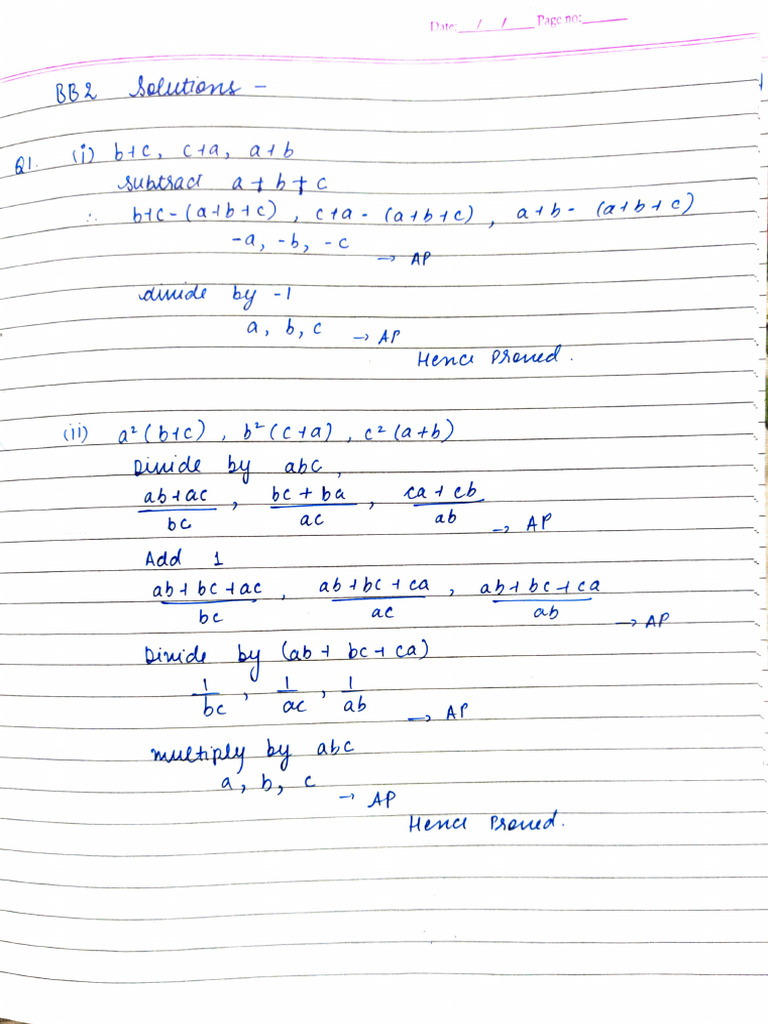 Date: / / Page no:
BB2 Solutions -
Q1. (i) b+c, c+a, a+b
subtract a+b+c
∴ b+c-(a+b+c), c+a-(a+b+c), a+b-(a+b+c)
-a, -b, -c → AP
divide by -1
a, b, c → AP
Hence Proved.
(ii) a²(b+c), b²(c+a), c²(a+b)
Divide by abc,
(ab+ac)/bc, (bc+ba)/ac, (ca+cb)/ab → AP
Add 1
(ab+bc+ac)/bc, (ab+bc+ca)/ac, (ab+bc+ca)/ab → AP
Divide by (ab+bc+ca)
1/bc, 1/ac, 1/ab → AP
multiply by abc
a, b, c → AP
Hence Proved.